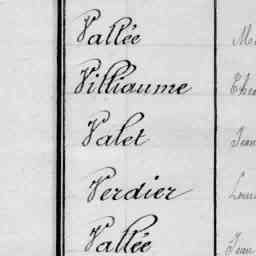 Vallée
Villiaume
Valet Jean
Verdier
Vallée Jean